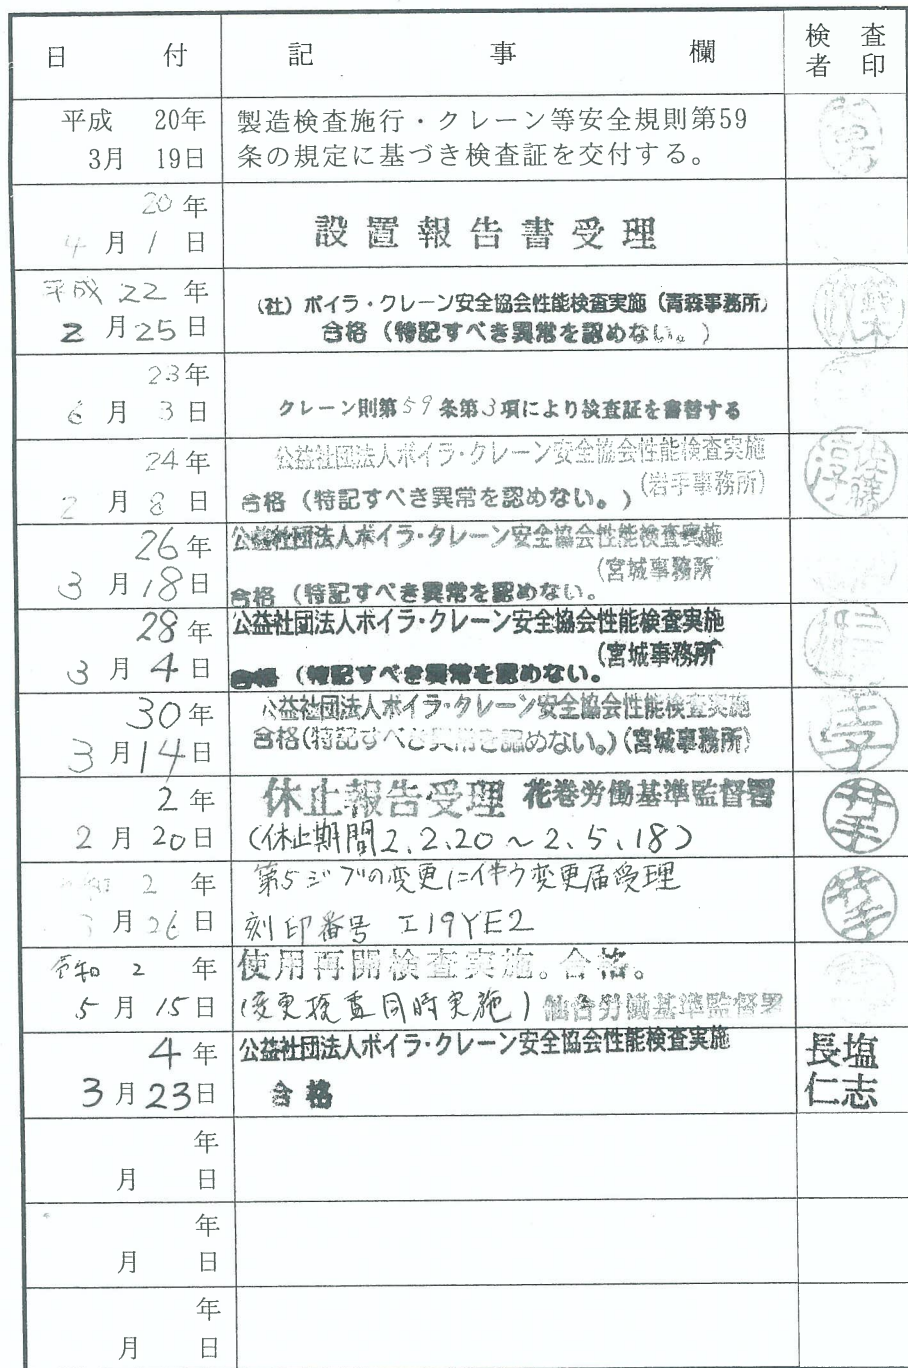 日 付 記 事 欄 検査者印
平成 20年
3月 19日
製造検査施行・クレーン等安全規則第59
条の規定に基づき検査証を交付する。
20年
4月1日
設置報告書受理
平成22年
2月25日
(社)ボイラ・クレーン安全協会性能検査実施(青森事務所)
合格(特記すべき異常を認めない。)
23年
6月3日
クレーン則第59条第3項により検査証を書替する
24年
2月8日
公益社団法人ボイラ・クレーン安全協会性能検査実施
(岩手事務所)
合格(特記すべき異常を認めない。)
佐藤
淳
26年
3月18日
公益社団法人ボイラ・クレーン安全協会性能検査実施
(宮城事務所
合格(特記すべき異常を認めない。
28年
3月4日
公益社団法人ボイラ・クレーン安全協会性能検査実施
(宮城事務所
合格(特記すべき異常を認めない。
30年
3月14日
公益社団法人ボイラ・クレーン安全協会性能検査実施
合格(特記すべき異常を認めない。)(宮城事務所)
2年
2月20日
休止報告受理 花巻労働基準監督署
(休止期間2.2.20～2.5.18)
2年
月26日
第5ジブの変更に伴う変更届受理
刻印番号 エ19YE2
令和2年
5月15日
使用再開検査実施。合格。
(変更検査同時実施)仙台労働基準監督署
4年
3月23日
公益社団法人ボイラ・クレーン安全協会性能検査実施
合格
長塩
仁志
年
月 日
年
月 日
年
月 日